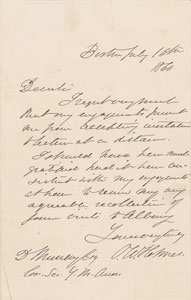 Boston July 16th
1860
Dear Sir
I regret very much
that my engagements prevent
me from accepting invitations
to lecture at a distance.
I should have been much
gratified had it been con-
sistent with my engagements
at home to renew my very
agreeable recollections of
former visits to Albany
Yours very truly
O. W. Holmes.
D. Murray Esq
Cor. Sec. Y. M. Assn